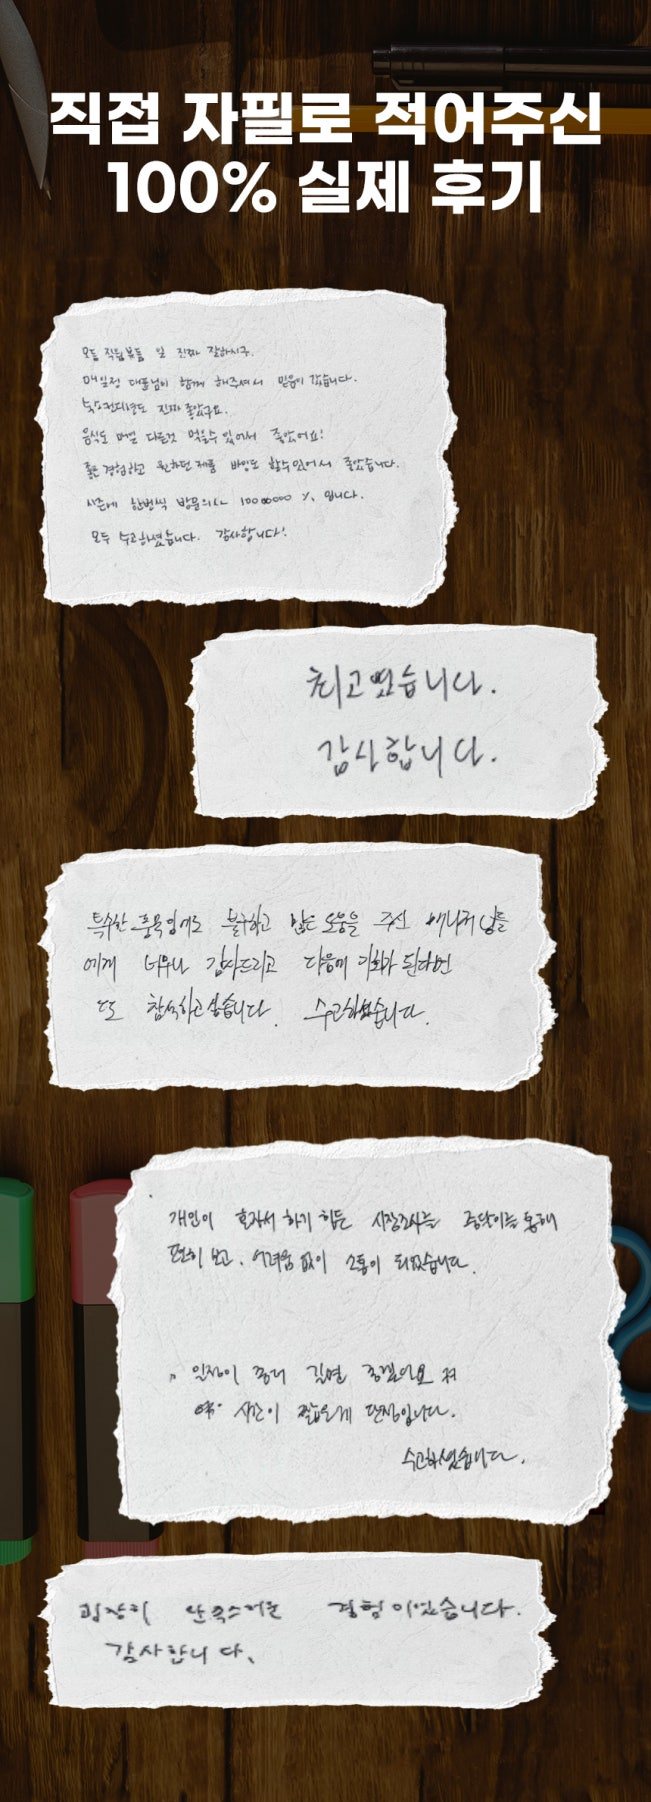 직접 자필로 적어주신
100% 실제 후기
모든 직원분들 일 진짜 잘하시구.
매일정 대표님이 함께 해주셔서 믿음이 갔습니다.
숙소컨디션도 진짜 좋았구요.
음식도 매일 다른것 먹을수 있어서 좋았어요!
좋은 경험하고 원하던 제품 바잉도 할수있어서 좋았습니다.
시즌에 한번씩 방문의사 1000000 % 입니다.
모두 수고하셨습니다. 감사합니다!
최고였습니다.
감사합니다.
특수한 품목임에도 불구하고 많은 도움을 주신 매니저님들
에게 너무나 감사드리고 다음에 기회가 된다면
또 참석하고싶습니다. 수고하셨습니다.
개인이 혼자서 하기 힘든 시장조사를 통해
편히 보고, 어려움 없이 소통이 되었습니다.
일정이 좀더 길면 좋겠어요
시간이 짧은게 단점입니다.
수고하셨습니다.
굉장히 만족스러운 경험이었습니다.
감사합니다.